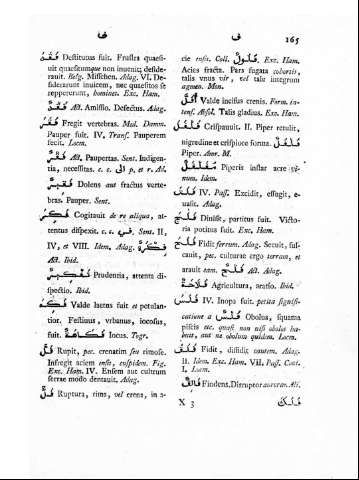 فق
ف
165
فَقَدَ Destitutus fuit. Frustra quaesi-
uit quaesitumque non inuenit; deside-
rauit. Relig. Missthen. Adag. VI. De-
siderarunt inuicem, nec quaesitos se
reppererunt, homines. Exc. Ham.
فَقْدٌ Act. Amissio. Defectus. Adag.
فَقَرَ Fregit vertebras. Mul. Damm.
Pauper fuit. IV. Transf. Pauperem
fecit. Locm.
فَقْرٌ Act. Paupertas. Sent. Indigen-
tia, necessitas. c. c. الى p. et r. Ad.
فَقِيرٌ Dolens aut fractus verte-
bras. Pauper. Sent.
فَكَرَ Cogitauit de re aliqua, at-
tentus dispexit. c. c. في. Sent. II,
IV, et VIII. Idem, Adag. فِكْرَةٌ
Act. Ibid.
تَفْكِيرٌ Prudencia, attenta di-
spectio. Ibid.
فَكِهَ Valde laetus fuit et petulan-
tior. Festiuus, vrbanus, iocosus,
fuit. فُكَاهَةٌ Iocus. Togr.
فَلَّ Rupit, pec. crenatim seu rimose.
Infregit aciem ensis, cuspidem. Fig.
Exc. Ham. IV. Ensem aut cultrum
serrae modo dentauit. Adag.
فَلٌّ Ruptura, rima, vel crena, in a-
cie ensis. Coll. فُلُولٌ. Exc. Ham.
Acies fracta. Pars fugata cohortis,
talis vnus vir, vel tale integrum
agmen. Mon.
أَفَلُّ Valde incisus crenis. Form. in-
tens. Absol. Talis gladius. Exc. Ham.
فَلْفَلَ Crispauit. II. Piper retulit,
nigredine et crispioce forma. فُلْفُلٌ
Piper. Amr. M.
مُفَلْفَلٌ Piperis instar acre vi-
num. Idem.
فَلَتَ IV. Pass. Excidit, effugit, e-
uasit. Adag.
فَلَجَ Diuisit, partitus fuit. Victo-
ria potitus fuit. Exc. Ham.
فَلَحَ Fidit ferrum. Adag. Secuit, sul-
cauit, pec. culturae ergo terram, et
arauit eam. فَلْحٌ Act. Adag.
فِلَاحَةٌ Agricultura, aratio. Ibid.
فَلَسَ IV. Inops fuit. petita significa-
catione a فَلْسٌ Obolus, squama
piscis etc. quasi non nisi obolos ha-
buit, aut ne obolum quidem. Locm.
فَلَقَ Fidit, diffidit cautem. Adag.
II. Idem. Exc. Ham. VII. Pass. Conj.
I. Locm.
فَالِقٌ Findens, Disruptor aurorae. Ali.
X 3
فَلَكٌ